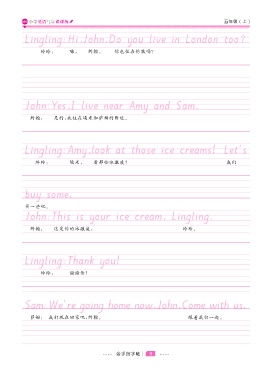 小学英语写字课课练
五年级(上)
Lingling:Hi,John.Do you live in London too?
玲玲: 嗨, 约翰。 你也住在伦敦吗?
John:Yes.I live near Amy and Sam.
约翰: 是的,我住在埃米和萨姆附近。
Lingling:Amy,look at those ice creams! Let's
玲玲: 埃米, 看那些冰激凌! 我们
buy some.
买一些吧。
John:This is your ice cream, Lingling.
约翰: 这是你的冰激凌, 玲玲。
Lingling:Thank you!
玲玲: 谢谢你!
Sam:We're going home now,John.Come with us.
萨姆: 我们现在回家吧,约翰。 跟着我们一起。